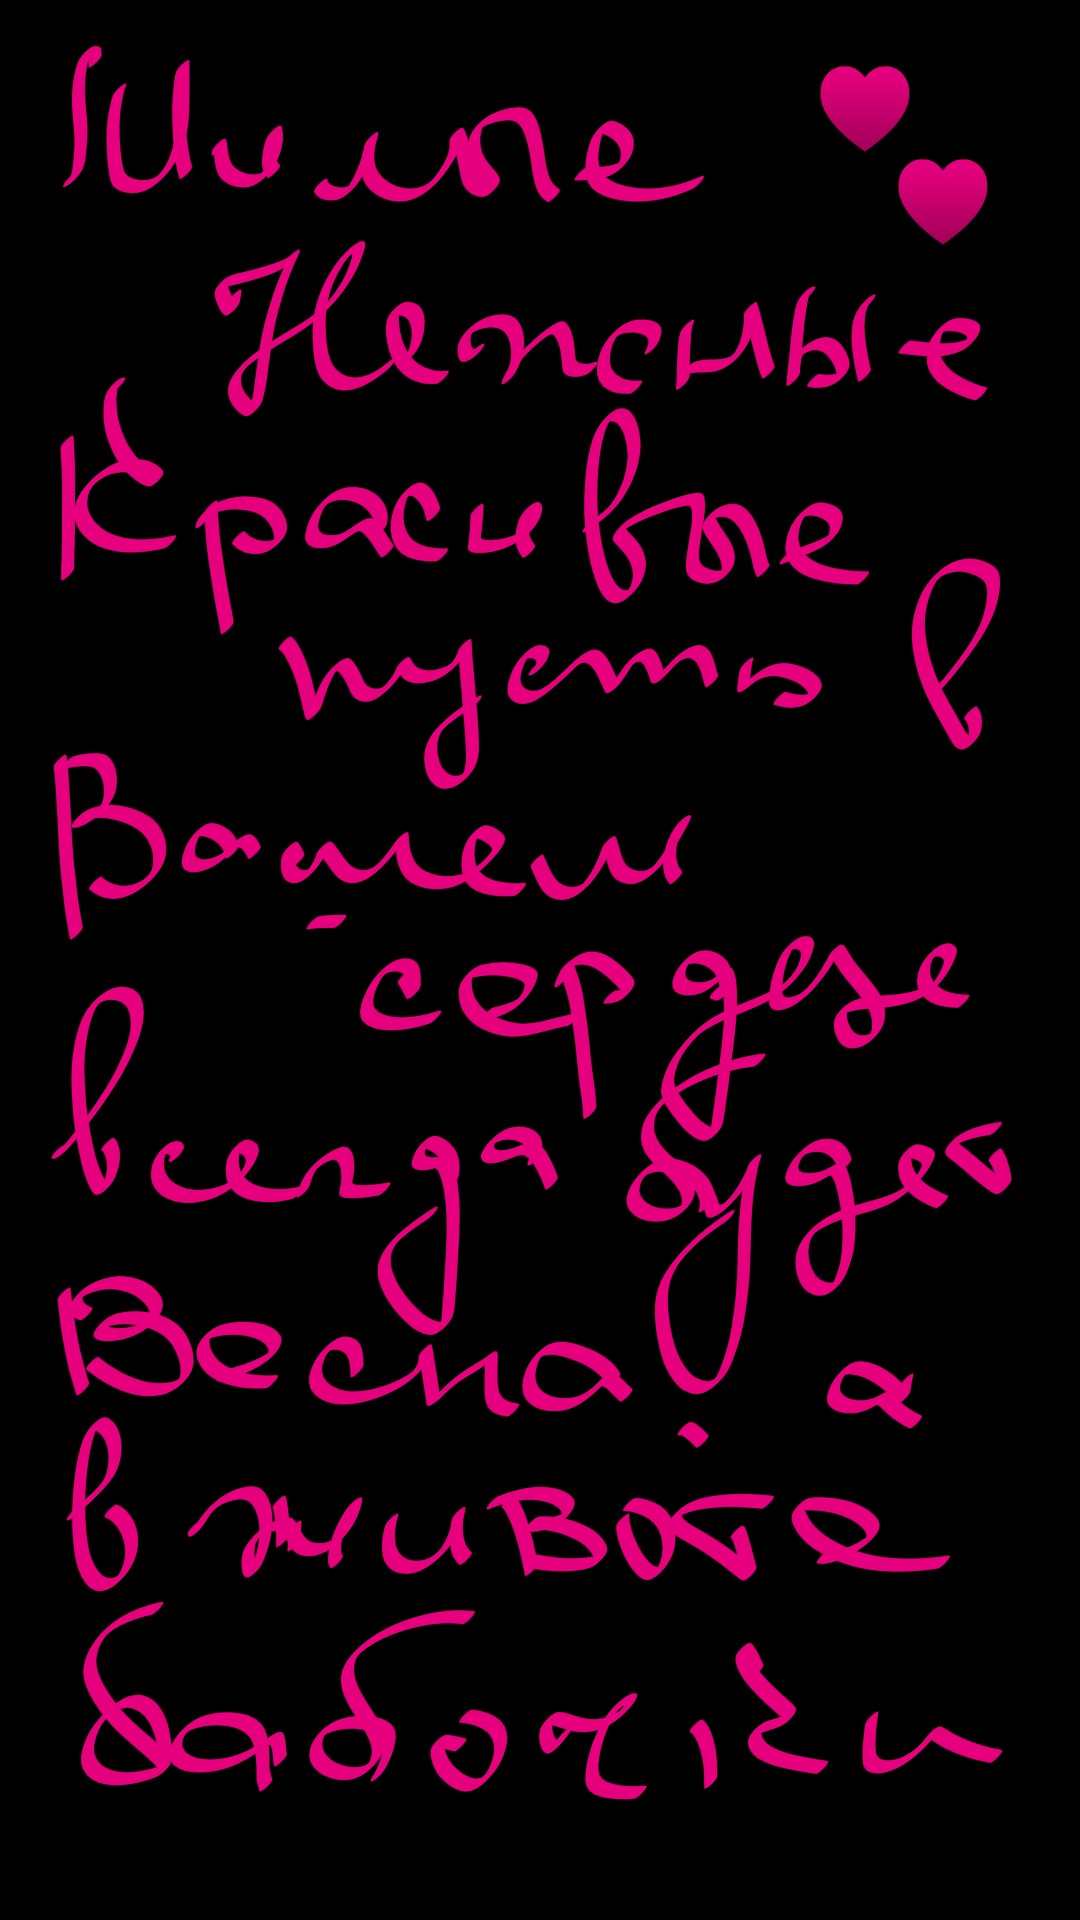 Милые
Нежные
Красивые
пусть в
Вашем
сердце
всегда будет
Весна а
в животе
бабочки